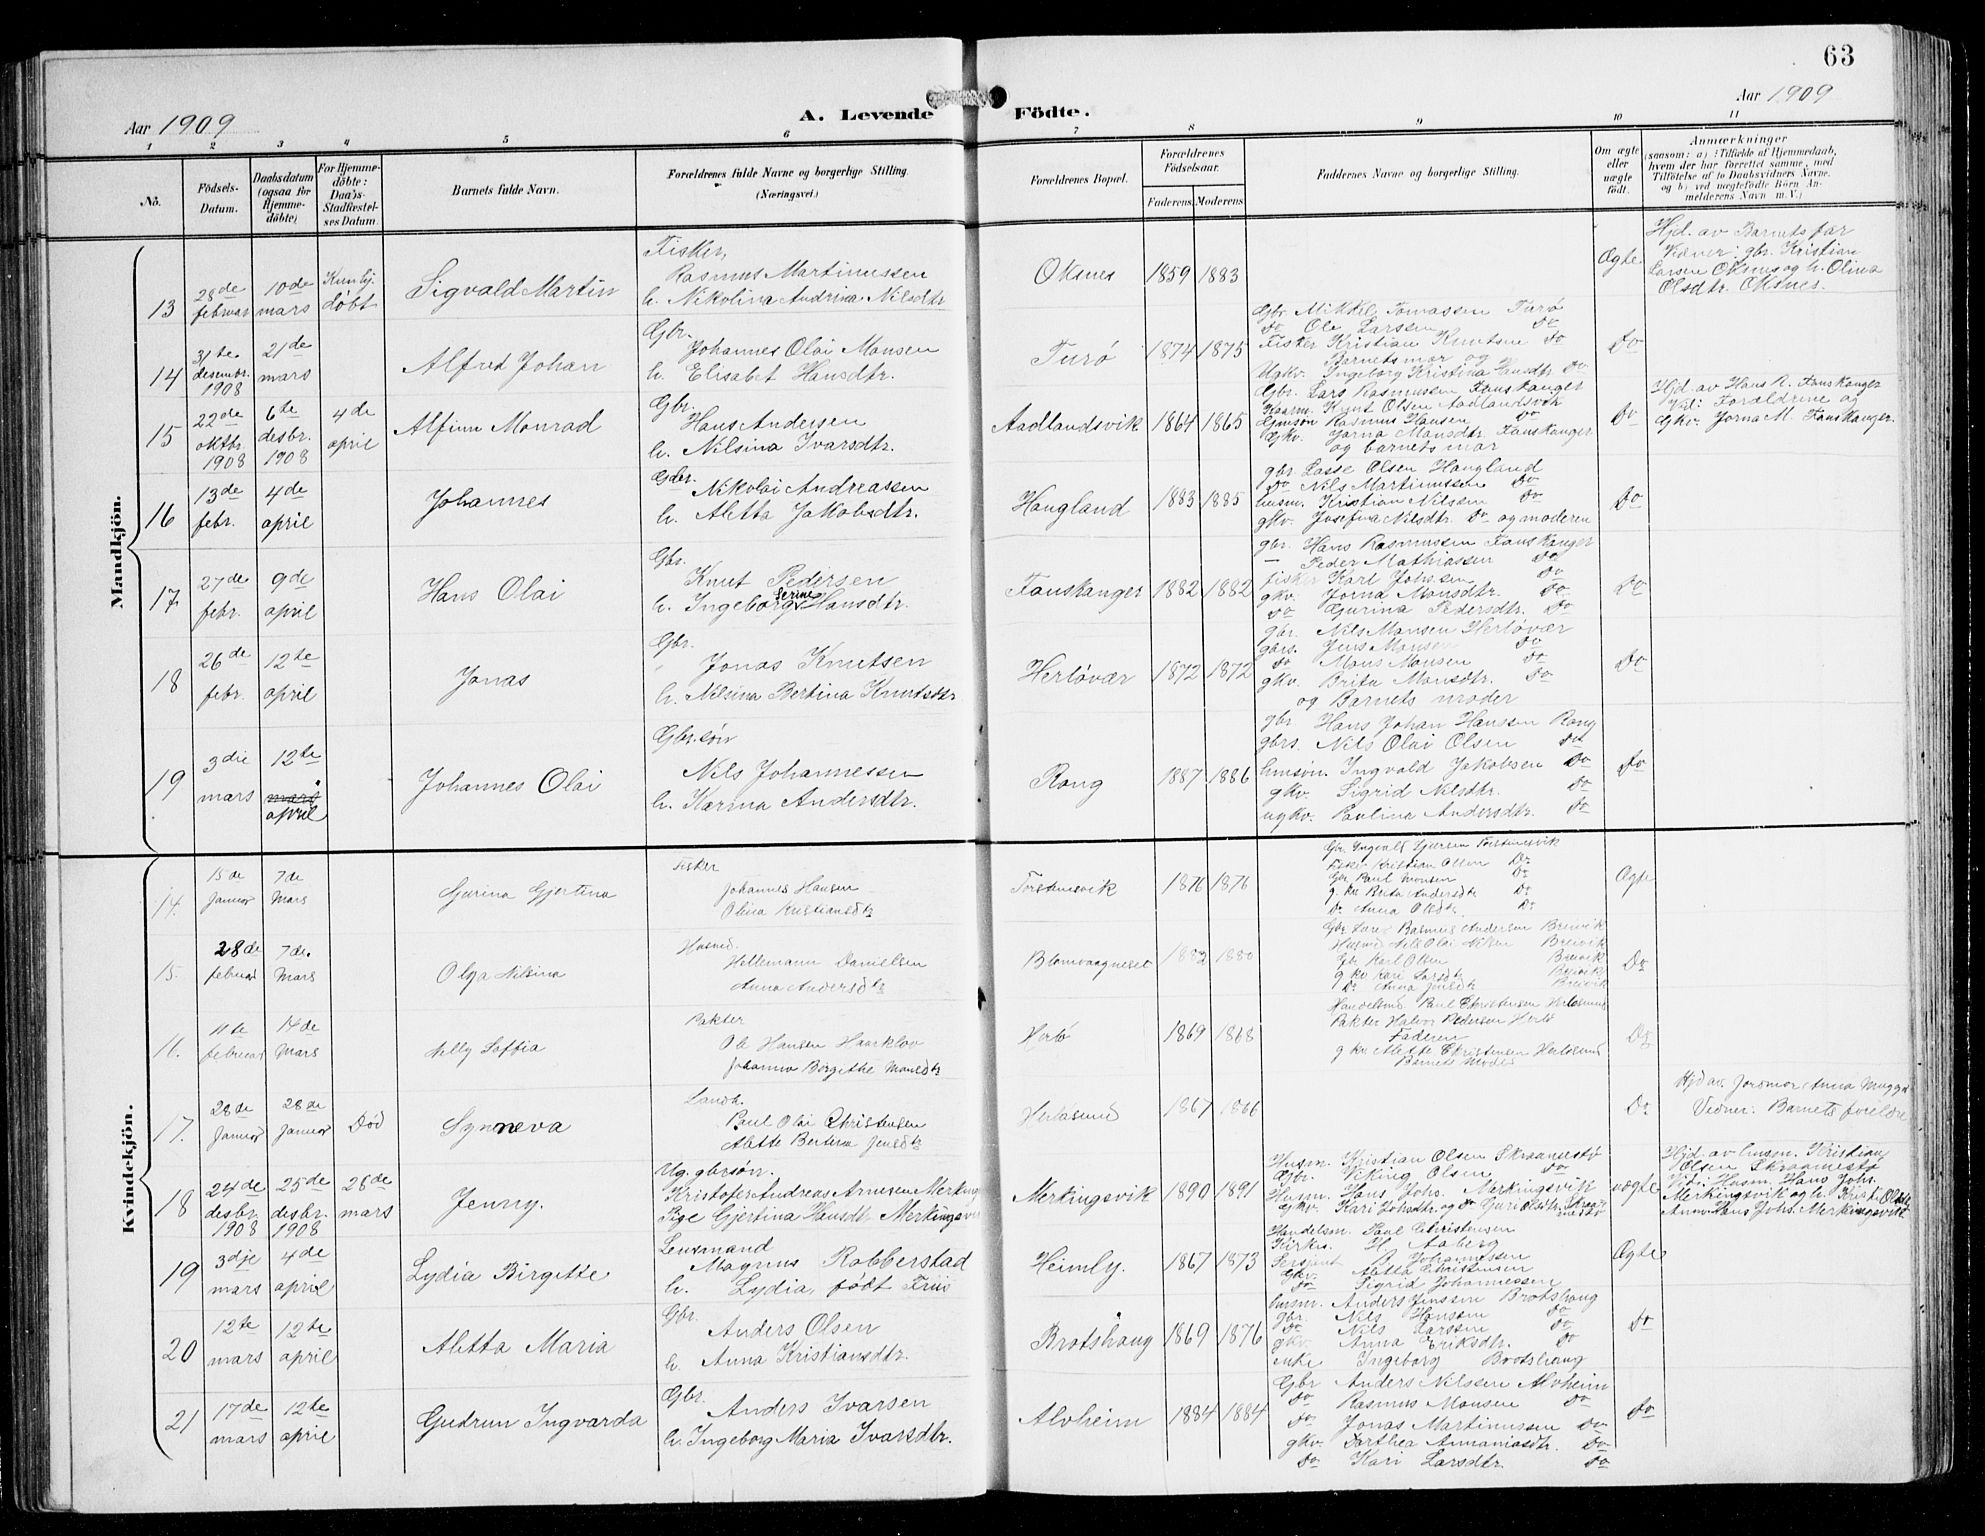 63
Aar 1909
A. Levende Födte.
Aar 1909
1 2 3 4 5 6 7 8 9 10 11
No.
Födsels-Datum.
Daabsdatum (ogsaa for Hjemmedöbte)
For Hjemmedöbte: Daabs Stadfæstelses Datum.
Barnets fulde Navn.
Forældrenes fulde Navne og borgerlige Stilling.
(Næringsvei.)
Forældrenes Bopæl.
Forældrenes Födselsaar.
Faderens. Moderens.
Faddernes Navne og borgerlige Stilling.
Om ægte eller uægte födt.
Anmærkninger
(saasom: a) i Tilfælde af Hjemmedaab, hvem der har forrettet samme, med Tilföielse af to Daabsvidners Navne, og b) ved uægtefödte Börn Anmelderens Navn m.V.)
Mandkjön.
13
28de februar
10de mars
Kun hj. døbt
Sigvald Martin
Fisker,
Rasmus Martinussen
h. Nikolina Andrina Nilsdtr
Oksnes
1859 1883
Ægte
Hjd. av Barnets far
Vidner: gbr. Kristian
Larsen Oksnes og h. Olina
Olsdtr. Oksnes.
14
31te desembr. 1908
21de mars
Alfred Johan
Gbr.
Johannes Olai Monsen
h. Elisabet Hansdtr.
Turø
1874 1875
Gbr. Mikkel Tomassen Turø
Do Ole Larssen Do
Fisker Kristian Knutsen Do
Barnets mor og
Ugkv. Ingeborg Kristina Hansdtr Do
Do
15
22de oktbr. 1908
6te desbr. 1908
4de april
Alfinn Monrad
Gbr.
Hans Andersen
h. Nilsina Ivarsdtr.
Aadlandsvik
1864 1865
Gbr. Lars Rasmussen Fauskanger
Knut Olsen Aadlandsvik
Rasmus Hansen Do
Gkv. Jorna Monsdtr. Fauskanger
og barnets mor
Do
Hjd. av Hans R. Fauskanger
Vid: Forældrene og
Gkv. Jorna M. Fauskanger.
16
13de febr.
4de april
Johannes
Gbr.
Nikolai Andreassen
h. Aletta Jakobsdtr.
Hougland
1883 1885
gbr Lasse Olsen Hougland
Do Nils Martinussen Do
husm. Kristian Nilsen Do
gkv. Josefina Nilsdtr. Do og moderen
Do
17
27de febr.
9de april
Hans Olai
Gbr.
Knut Pedersen
h. Ingeborg Serine Hansdtr.
Fauskanger
1882 1882
gbr. Hans Rasmussen Fauskanger
— Peder Mathiassen Do
fisker Karl Johssen Do
gkv. Jorna Monsdtr. Do
Do Gurina Pedersdtr. Do
Do
18
26de febr.
12te april
Jonas
Gbr.
Jonas Knutsen
h. Nilsina Bertina Knutsdtr
Herløvær
1872 1872
gbr. Nils Monsen Herløvær
gbrs. Jens Monsen Do
Do Mons Monsen Do
gkv. Brita Monsdtr. Do
og Barnets moder
Do
19
3die mars
12te mars april
Johannes Olai
Gbr.søn
Nils Johannessen
h. Karina Andersdtr.
Rong
1887 1886
gbr Hans Johan Hanssen Rong
gbrs. Nils Olai Olsen Do
husøn. Ingvald Jakobsen Do
gkv. Sigrid Nilsdtr. Do
ugkv. Paulina Andersdtr. Do
Do
Kvindekjön.
14.
15de Januar
7de Mars
Gurina Gjertina
Fisker
Johannes Hansen
Olina Kristiansdtr
Torsteinsvik
1876 1876
Gbr. Ingvald Torsteinsvik
Fisker Kristian Olsen Do
Gbr Paul Monsen Do
g. kv Brita Andersdtr Do
Do Anna Olsdtr. Do
Ægte
15.
28de februar
7de. Mars
Olga Nilsina
Husmd.
Hellemann Danielsen
Anna Andersdtr
Blomvaagneset
1882 1880
Gbr Lars Rasmus Andersen Breivik
Husmd Nils Olai Nilsen Breivik
Gbr Karl Olsen Breivik
g kv Kari Larsdtr Breivik
Do. Anna Jensdtr Breivik
Do
16.
11te februar
14de Mars
Nelly Soffia
Pakter
Ole Hansen Haarklov
Johanna Bergithe Monsdtr
Herlø
1869 1868
Handelsmd Paul Christensen Herløsund
Pakter Halvor Pedersen Herlø
Faderen
g kv. Alette Christensen Herløsund
Barnets Moder
Do
17.
28de Januar
28de Januar
Død
Synneva
Landh.
Paul Olai Christensen
Alette Bertina Jensdtr
Herløsund
1867 1866
Do
Hjd av. Jordmor Anna
Vidner: Barnets foreldre
18
24de desbr. 1908
25de desbr. 1908
26de mars
Jenny.
Ug. gbrsønn.
Kristofer Andreas Arnesen Merking
Pige Gjertina Hansdtr Merkingsvik
Merkingsvik
1890 1891
Husm. Kristian Olsen Skraamestø
Gbr. Viking Olsen Do
Husm. Hans Johs. Merkingsvik
Gkv. Kari Johsdtr og Do Guri Olsdtr. Skraamestø
uægte
Hjd. av husm. Kristian
Olsen Skraamestø
Vid: Husm. Hans Johs.
Merkingsvik og h. Kristi Olsdtr
Anm. Hans Johs. Merkingsvik
19
3dje mars
4de april
Lydia Birgitte
Lensmand
Magnus Robberstad
h. Lydia, født Friis
Heimly.
1867 1873
Handelsm. Paul Christensen
Kirkes. H. Aaberg
Sersjant Johannessen
Gkv. Aletta Christensen
Do Sigrid Johannessen
Ægte
20
12te mars
12te april
Aletta Maria
Gbr.
Anders Olsen
h. Anna Kristiansdtr.
Brotshaug
1869 1876
husm. Anders Jensen Brotshaug
gbr. Nils Hanssen Do
Do Nils Larssen Do
gkv. Anna Eriksdtr. Do
enke Ingeborg Brotshaug
Do
21
17de mars
12te april
Gudrun Ingvarda
Gbr.
Anders Ivarsen
h. Ingeborg Maria Ivarsdtr.
Alvheim
1884 1884
Gbr Anders Nilssen Alvheim
Do Rasmus Monsen Do
Do Jonas Martinussen Do
gkv. Dorthea Annaniasdtr. Do
Do Kari Larsdtr. Do
Do